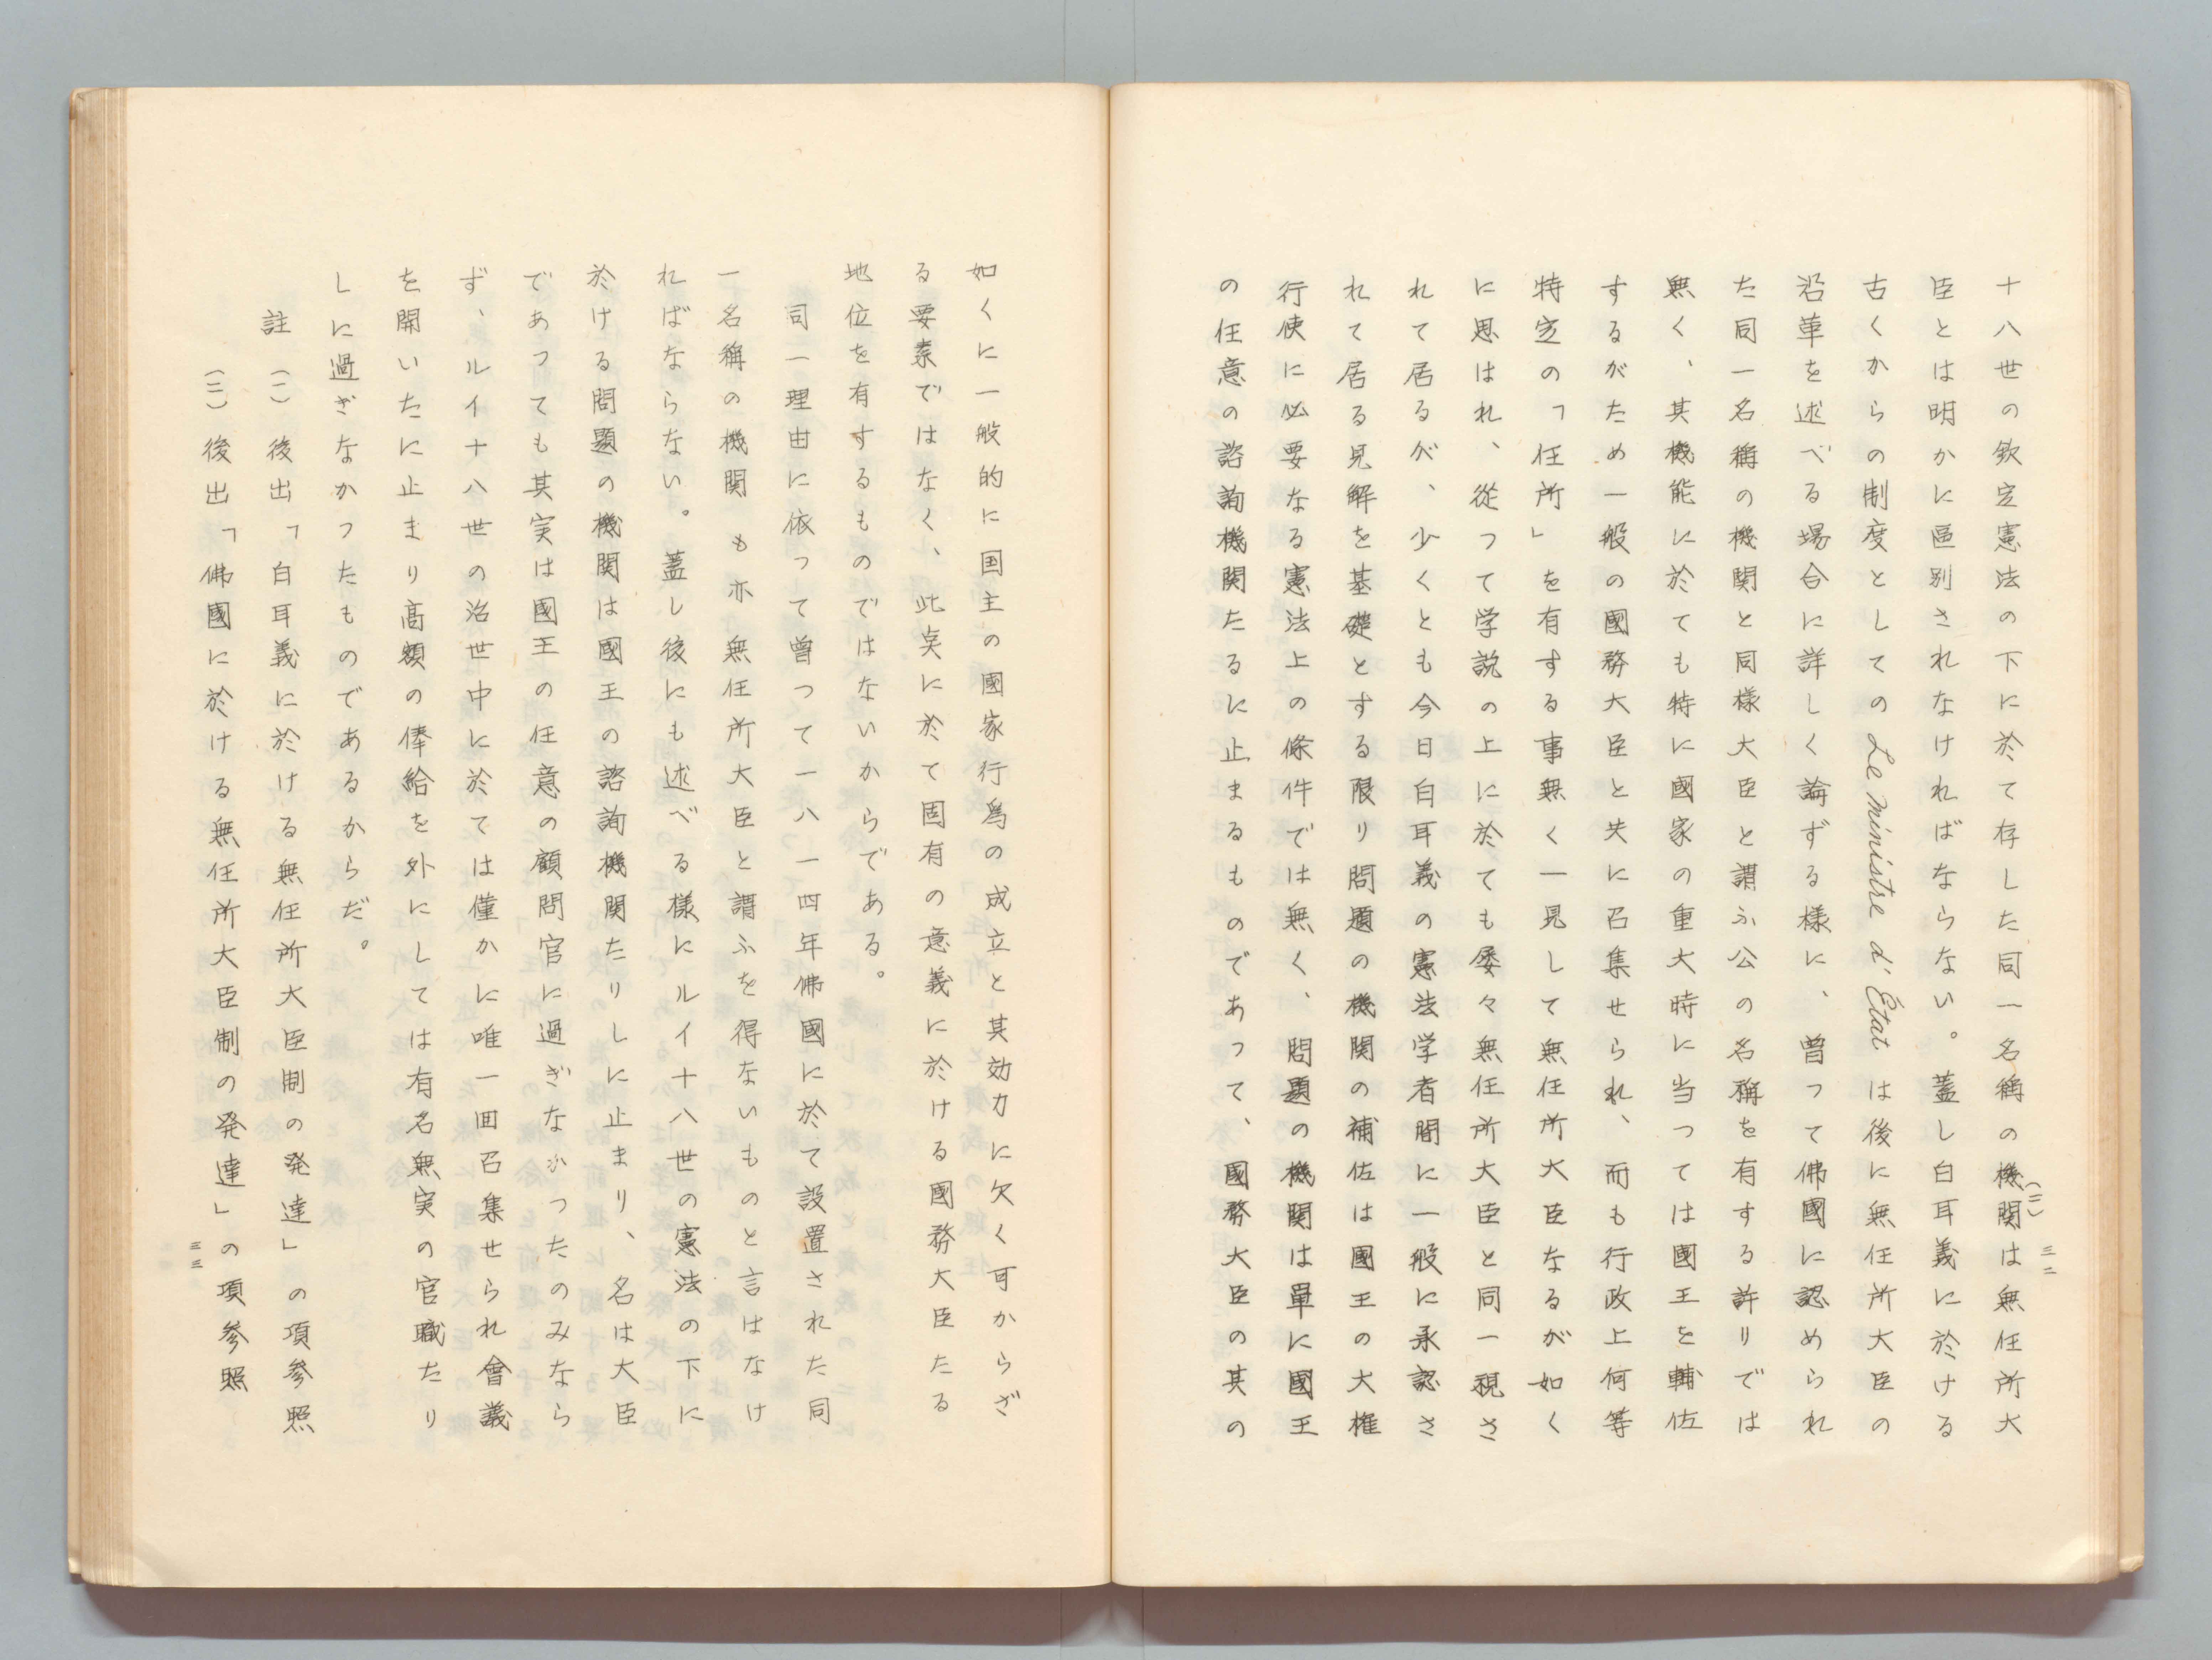 十八世の欽定憲法の下に於て存した同一名稱の機関は無任所大
(二)
三二
臣とは明かに區別されなければならない。蓋し白耳義に於ける
古くからの制度としての Le ministre d'État は後に無任所大臣の
沿革を述べる場合に詳しく論ずる様に、曽つて佛國に認められ
た同一名稱の機関と同様大臣と謂ふ公の名稱を有する許りでは
無く、其機能に於ても特に國家の重大時に当つては國王を輔佐
するがため一般の國務大臣と共に召集せられ、而も行政上何等
特定の「任所」を有する事無く一見して無任所大臣なるが如く
に思はれ、從つて学説の上に於ても屡々無任所大臣と同一視さ
れて居るが、少くとも今日白耳義の憲法学者間に一般に承認さ
れて居る見解を基礎とする限り問題の機関の補佐は國王の大権
行使に必要なる憲法上の條件では無く、問題の機関は單に國王
の任意の諮詢機関たるに止まるものであつて、國務大臣の其の
如くに一般的に国主の國家行爲の成立と其効力に欠く可からざ
る要素ではなく、此奌に於て固有の意義に於ける國務大臣たる
地位を有するものではないからである。
同一理由に依つて曽つて一八一四年佛國に於て設置された同
一名稱の機関も亦無任所大臣と謂ふを得ないものと言はなけ
ればならない。蓋し後にも述べる様にルイ十八世の憲法の下に
於ける問題の機関は國王の諮詢機関たりしに止まり、名は大臣
であつても其実は國王の任意の顧問官に過ぎなかつたのみなら
ず、ルイ十八世の治世中に於ては僅かに唯一回召集せられ會議
を開いたに止まり高額の俸給を外にしては有名無実の官職たり
しに過ぎなかつたものであるからだ。
註 (一) 後出「白耳義に於ける無任所大臣制の発達」の項参照
(二) 後出「佛國に於ける無任所大臣制の発達」の項参照
三三